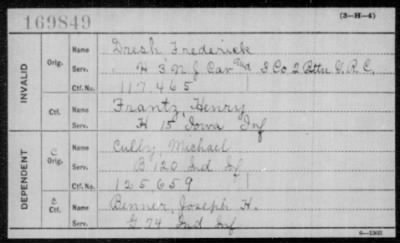 169849
(3-H-4)
INVALID
Orig.
Name Dresh Frederick
Serv. H 3 N J Cav 3 Co 2 Battn V. R. C.
Ctf. No. 117465
Ctf.
Name Frantz, Henry
Serv. H 15 Iowa Inf
DEPENDENT
C
Orig.
Name Culby, Michael
Serv. B 120 Ind Inf
Ctf. No. 125659
C
Ctf.
Name Benner, Joseph H.
Serv. G 74 Ind Inf